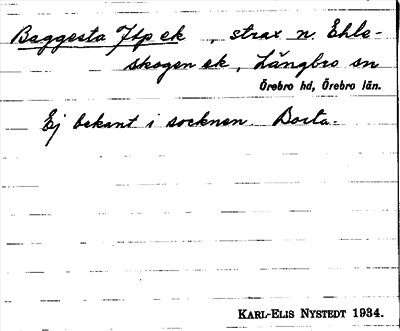 Baggesta Ftp ek , strax n. Ehle-
skogen ek, Långbro sn
Örebro hd, Örebro län.
Ej bekant i socknen. Borta.
KARL-ELIS NYSTEDT 1934.